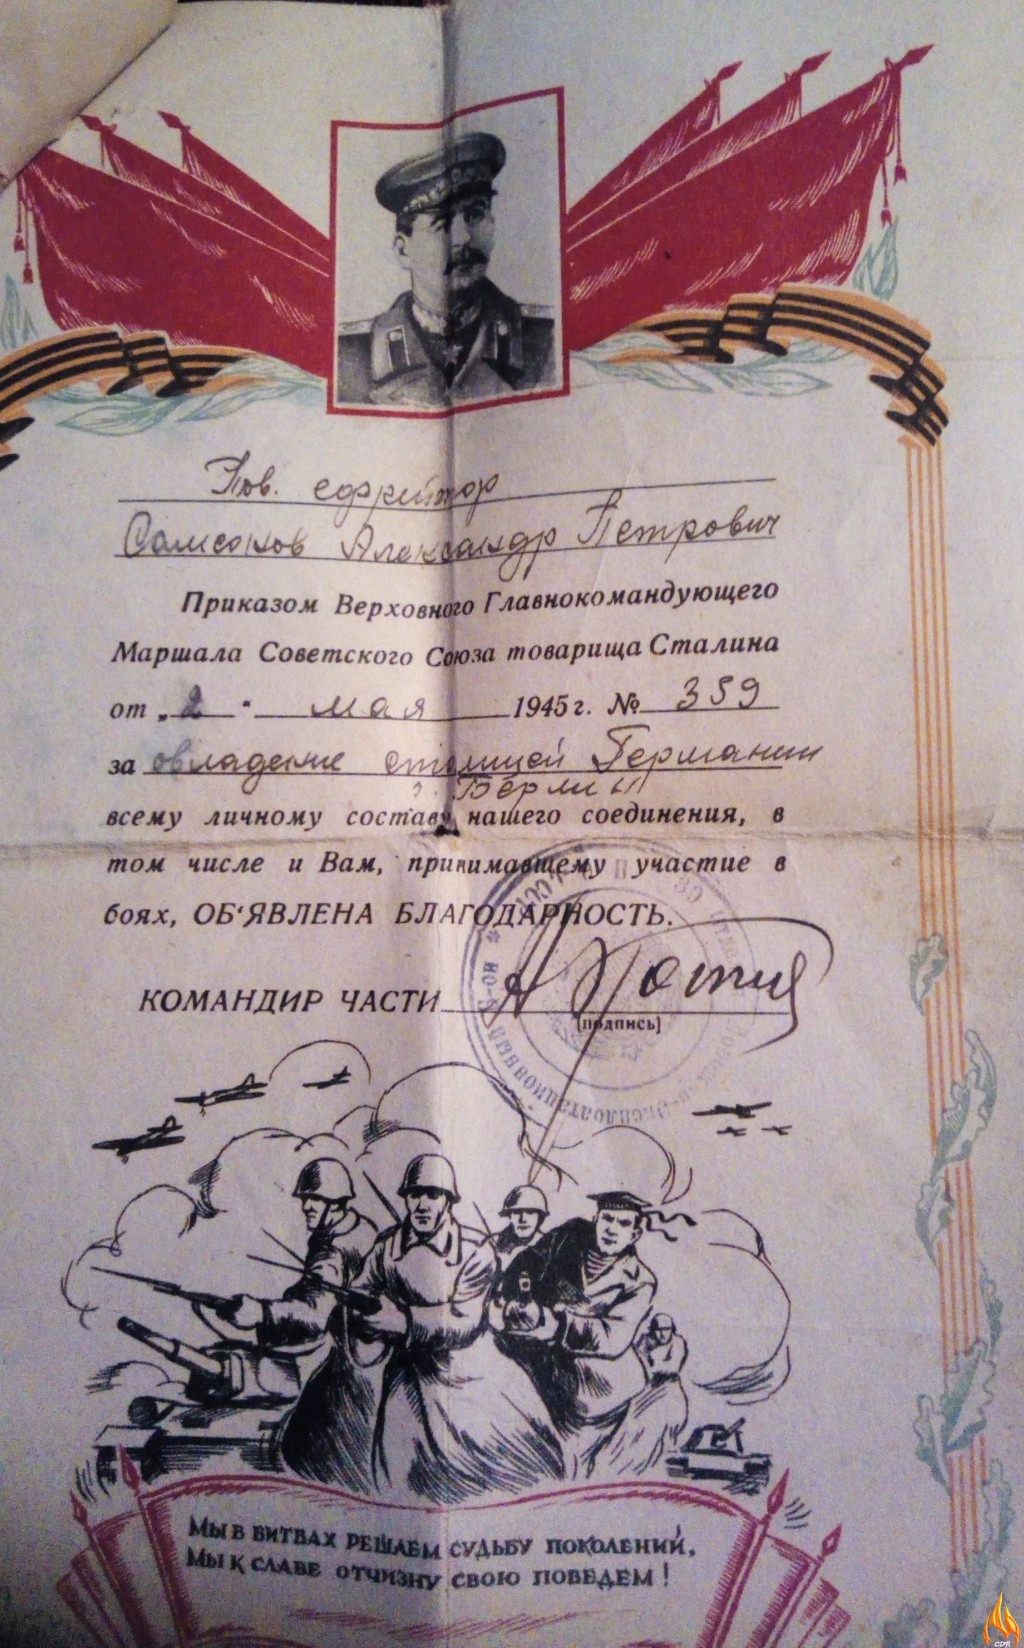 Тов. ефрейтор
Самсонов Александр Петрович
Приказом Верховного Главнокомандующего
Маршала Советского Союза товарища Сталина
от „2“ мая 1945 г. № 359
за овладение столицей Германии
г. Берлин
всему личному составу нашего соединения, в
том числе и Вам, принимавшему участие в
боях, ОБ'ЯВЛЕНА БЛАГОДАРНОСТЬ.
КОМАНДИР ЧАСТИ
(подпись)
МЫ В БИТВАХ РЕШАЕМ СУДЬБУ ПОКОЛЕНИЙ,
МЫ К СЛАВЕ ОТЧИЗНУ СВОЮ ПОВЕДЕМ!